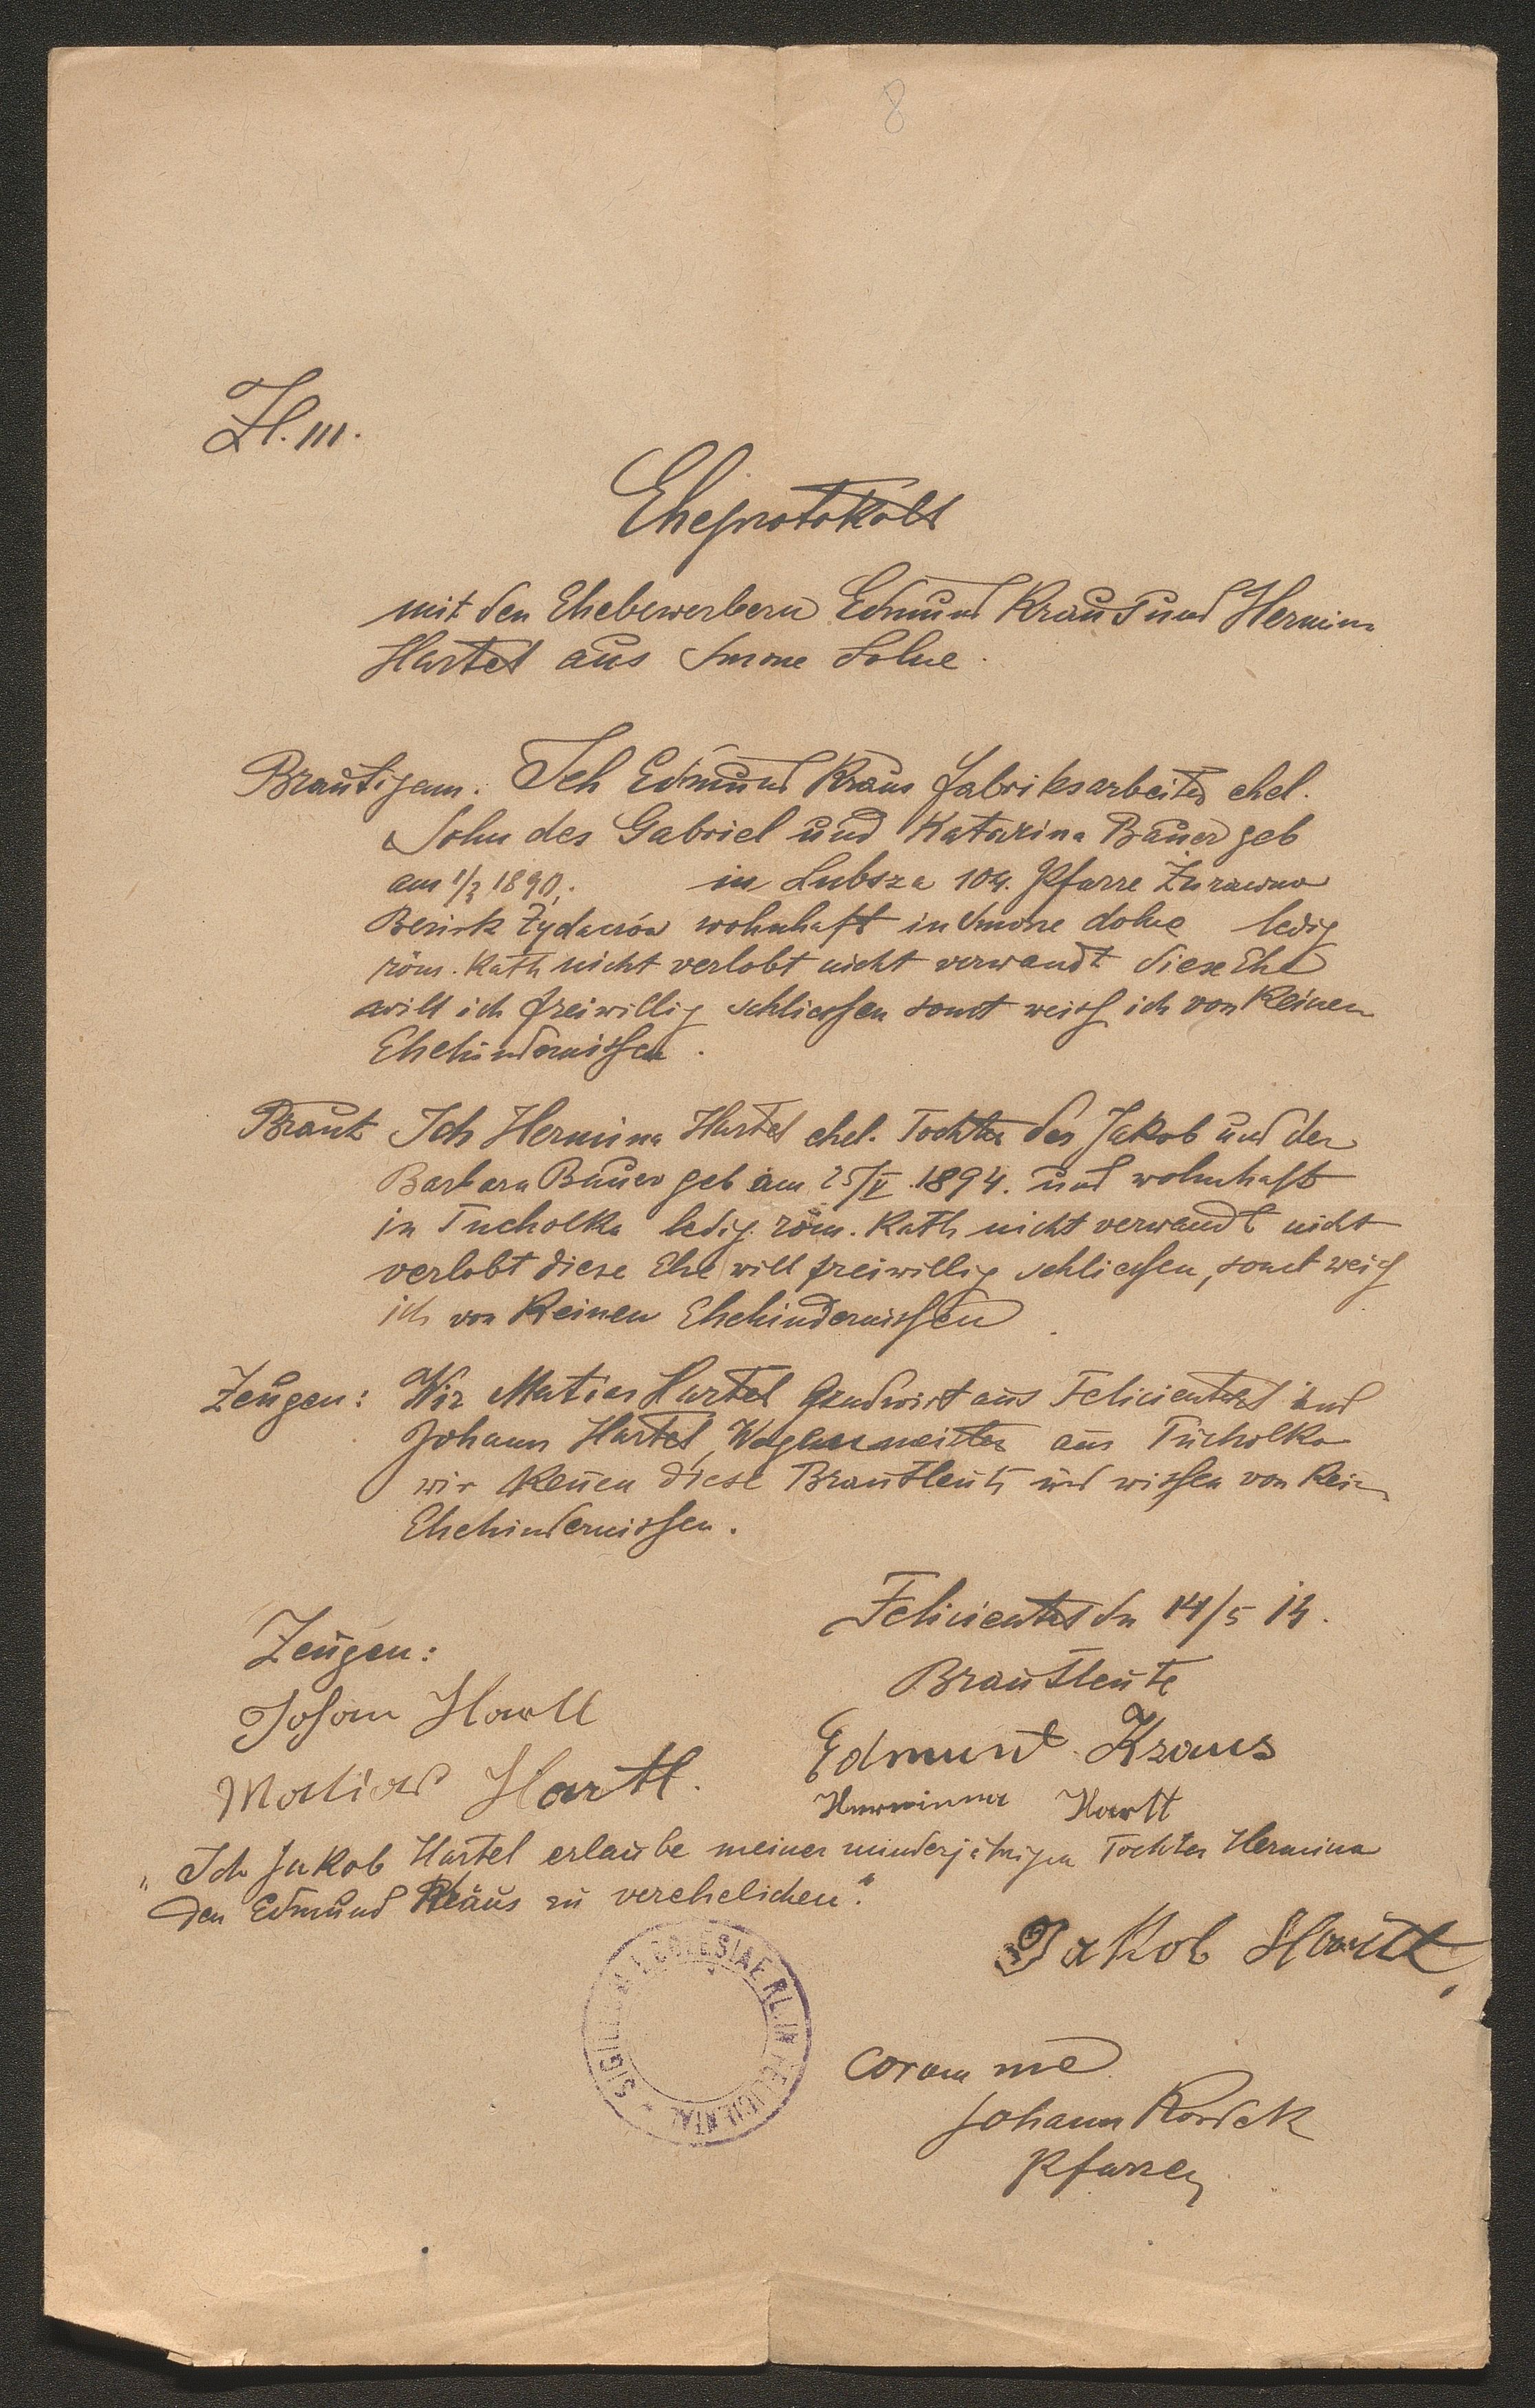 8
Zl. 111.
Eheprotokoll
mit den Ehebewerbern Edmund Kraus und Hermina
Hartel aus Smorze dolne.
Brautigam. Ich Edmund Kraus Fabriksarbeiter ehel.
Sohn des Gabriel und Katarina Bauer geb
am 1/3 1890. in Lubsza 104. Pfarre Żurawno
Bezirk Żydaczów wohnhaft in Smorze dolne ledig
röm. Kath nicht verlobt nicht verwandt diese Ehe
will ich freiwillig schliessen sonst weiss ich von keinen
Ehehindernissen.
Braut Ich Hermina Hartel ehel. Tochter des Jakob und der
Barbara Bauer geb am 25/V 1894. und wohnhaft
in Tucholka ledig. röm. Kath nicht verwandt nicht
verlobt diese Ehe will freiwillig schliessen, sonst weiss
ich von keinen Ehehindernissen.
Zeugen: Wir Matias Hartel Grundwirt aus Felicienthal und
Johann Hartel, Wagnermeister aus Tucholka
wir kennen diese Brautleute und wissen von kein
Ehehindernissen.
Felicienthal dn 14/5
Zeugen:
Brautleute
Johan Hartl
Edmund Kraus
Matias Hartl.
Herminna Hartl
"Ich Jakob Hartel erlaube meiner minderjährigen Tochter Hermina
den Edmund Kraus zu verehelichen."
Jakob Hartl
SIGILLUM ECCLESIAE R.L. IN FELICIENTAL
coram me
Johann
Pfarrer